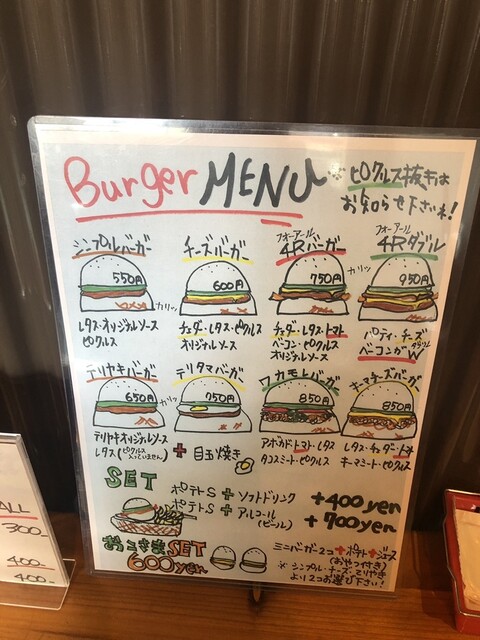 Burger MENU
※ピクルス抜きは
お知らせ下さいね!
シンプルバーガー
550円
カリッ
レタス・オリジナルソース
ピクルス
チーズバーガー
600円
チェダー・レタス・ピクルス
オリジナルソース
フォーアール
4Rバーガー
750円
カリッ
チェダー・レタス・トマト
ベーコン・ピクルス
オリジナルソース
フォーアール
4Rダブル
950円
パティ・チーズ
ベーコンがW
ダブル
テリヤキバーガー
650円
カリッ
テリヤキオリジナルソース
レタス(ピクルス入っていません)
テリタマバーガー
750円
+目玉焼き
ワカモレバーガー
850円
アボカド・トマト・レタス
タコスミート・ピクルス
キーマチーズバーガー
850円
レタス・チェダー・トマト
キーマミート・ピクルス
SET
ポテトS + ソフトドリンク +400yen
ポテトS + アルコール(ビール) +700yen
おこさまSET
600yen
ミニバーガー2コ+ポテト+ジュース
(おやつ付き)
※シンプル・チーズ・てりやき
より2つお選び下さい!
ALL
300-
400-
400-